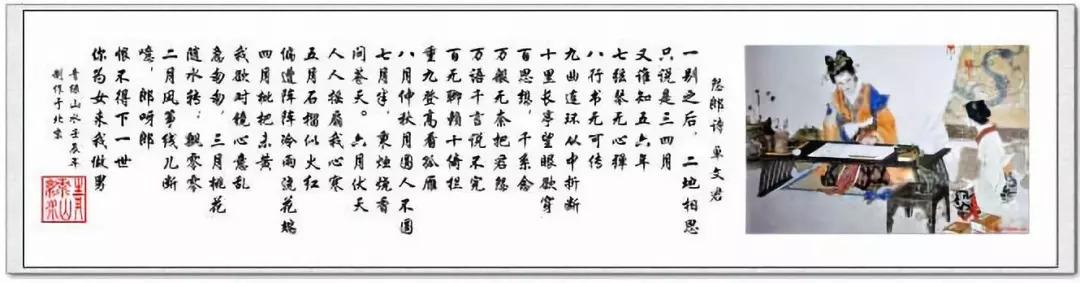 怨郎诗 卓文君
一别之后，二地相思
只说是三四月
又谁知五六年
七弦琴无心弹
八行书无可传
九曲连环从中折断
十里长亭望眼欲穿
百思想，千系念
万般无奈把君怨
万语千言说不完
百无聊赖十倚栏
重九登高看孤雁
八月仲秋月圆人不圆
七月半，秉烛烧香
问苍天，六月伏天
人人摇扇我心寒
五月石榴似火红
偏遭阵阵冷雨浇花端
四月枇杷未黄
我欲对镜心意乱
急匆匆，三月桃花
随水转；飘零零
二月风筝线儿断
噫，郎呀郎
恨不得下一世
你为女来我做男
青绿山水壬辰年
制作于北京
青绿山水